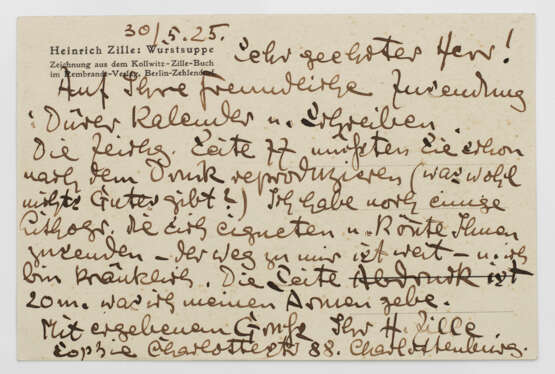 30/5.25.
Heinrich Zille: Wurstsuppe
Zeichnung aus dem Kollwitz-Zille-Buch
im Rembrandt-Verlag, Berlin-Zehlendorf
Sehr geehrter Herr!
Auf Ihre freundliche Zusendung
: Dürer Kalender u. Schreiben.
Die Zeichg. Seite 77 müßten Sie schon
nach dem Druk reproduzieren (was wohl
nichts Gutes gibt?) Ich habe noch einige
Lithogr. die sich eigneten u. könte Ihnen
zusenden – der weg zu mir ist weit – u. ich
bin kränklich. Die Seite Abdruck ist
20 m. was ich meinen Armen gebe.
Mit ergebenem Gruß Ihr H. Zille.
Sophie Charlottestr 88. Charlottenburg.